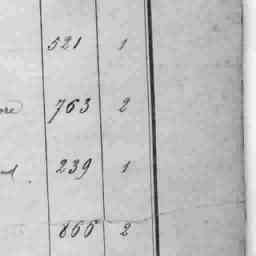 521 1
763 2
239 1
866 2